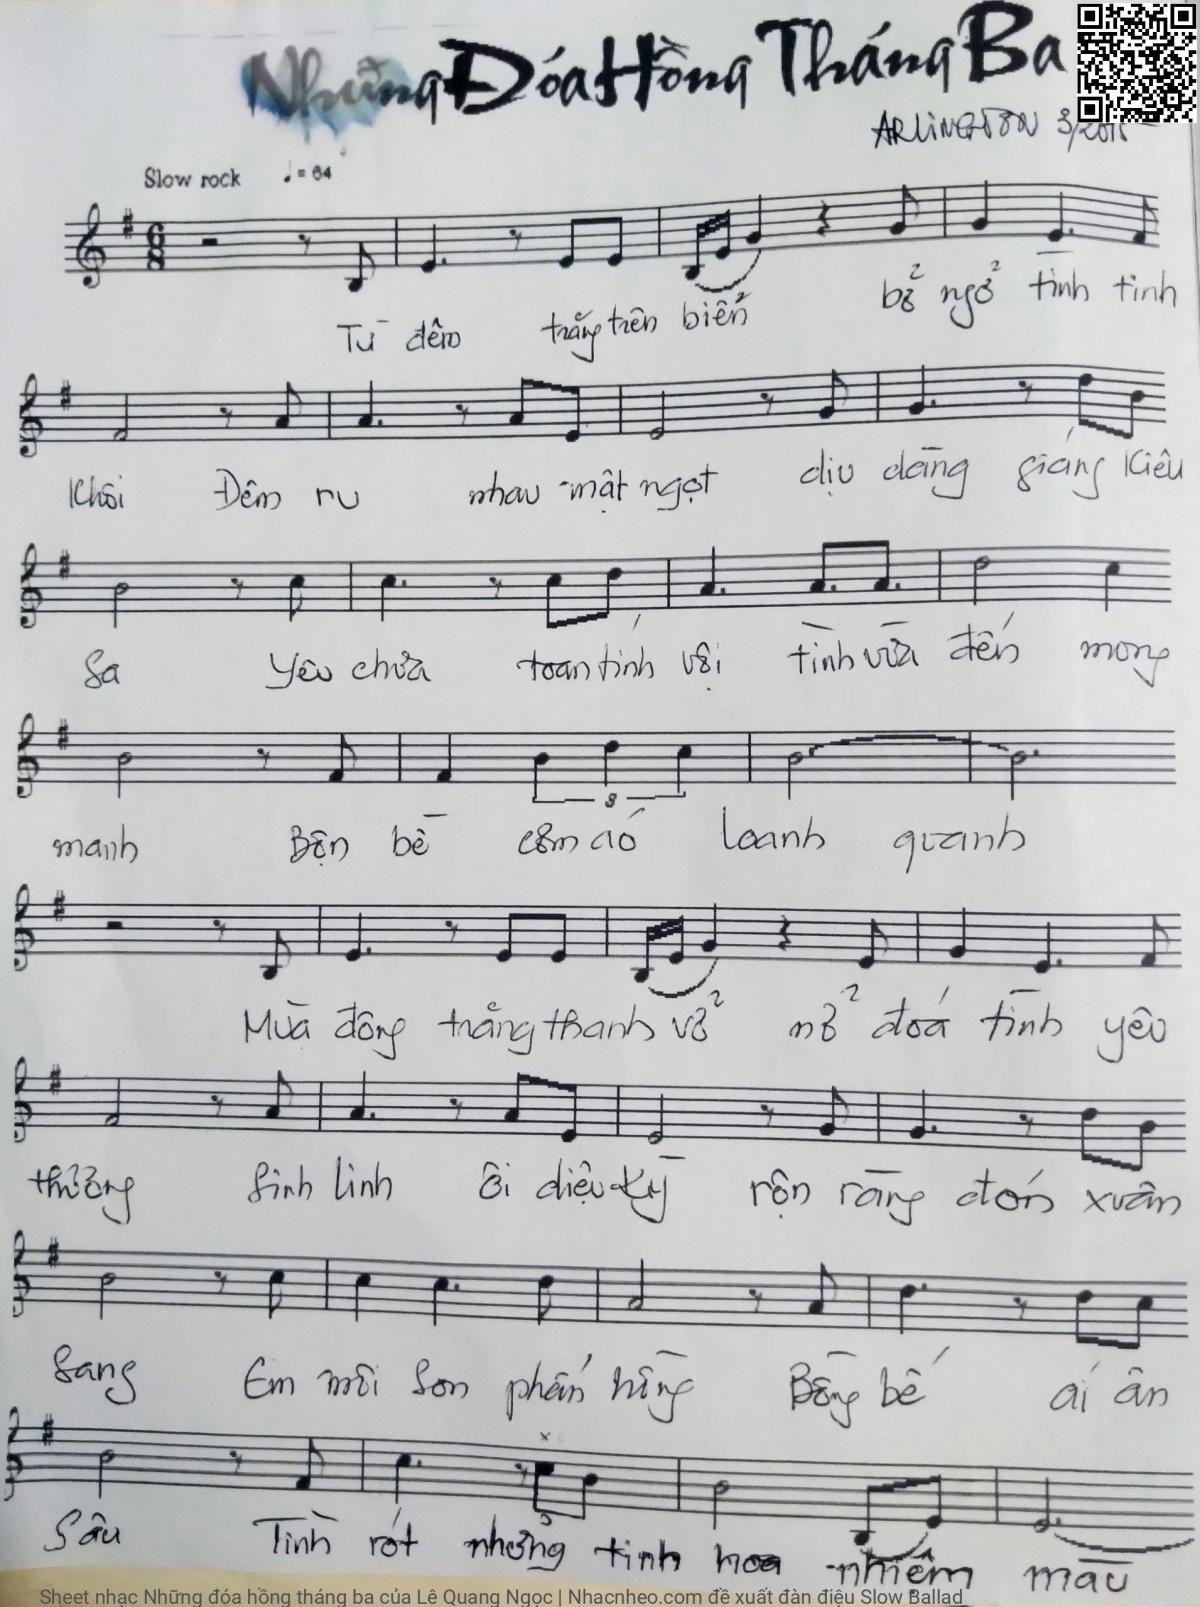 Những Đóa Hồng Tháng Ba
ARLINGTON 3/2015
Slow rock ♩= 64
Từ đêm trắng trên biển bở ngở tình tinh
Khôi Đêm ru nhau mật ngọt dịu dàng giáng Kiều
Sa Yêu chưa toan tính vội tình vừa đến mong
manh Bộn bề cơm áo loanh quanh
Mùa đông trắng thanh vở nở đoá tình yêu
thương Sinh linh Ôi diệu kỳ rộn ràng đón xuân
Sang Em môi Son phấn hồng Bồng bế ái ân
Sâu Tình rót những tinh hoa nhiệm mầu
Sheet nhạc Những đóa hồng tháng ba của Lê Quang Ngọc | Nhacnheo.com đề xuất đàn điệu Slow Ballad